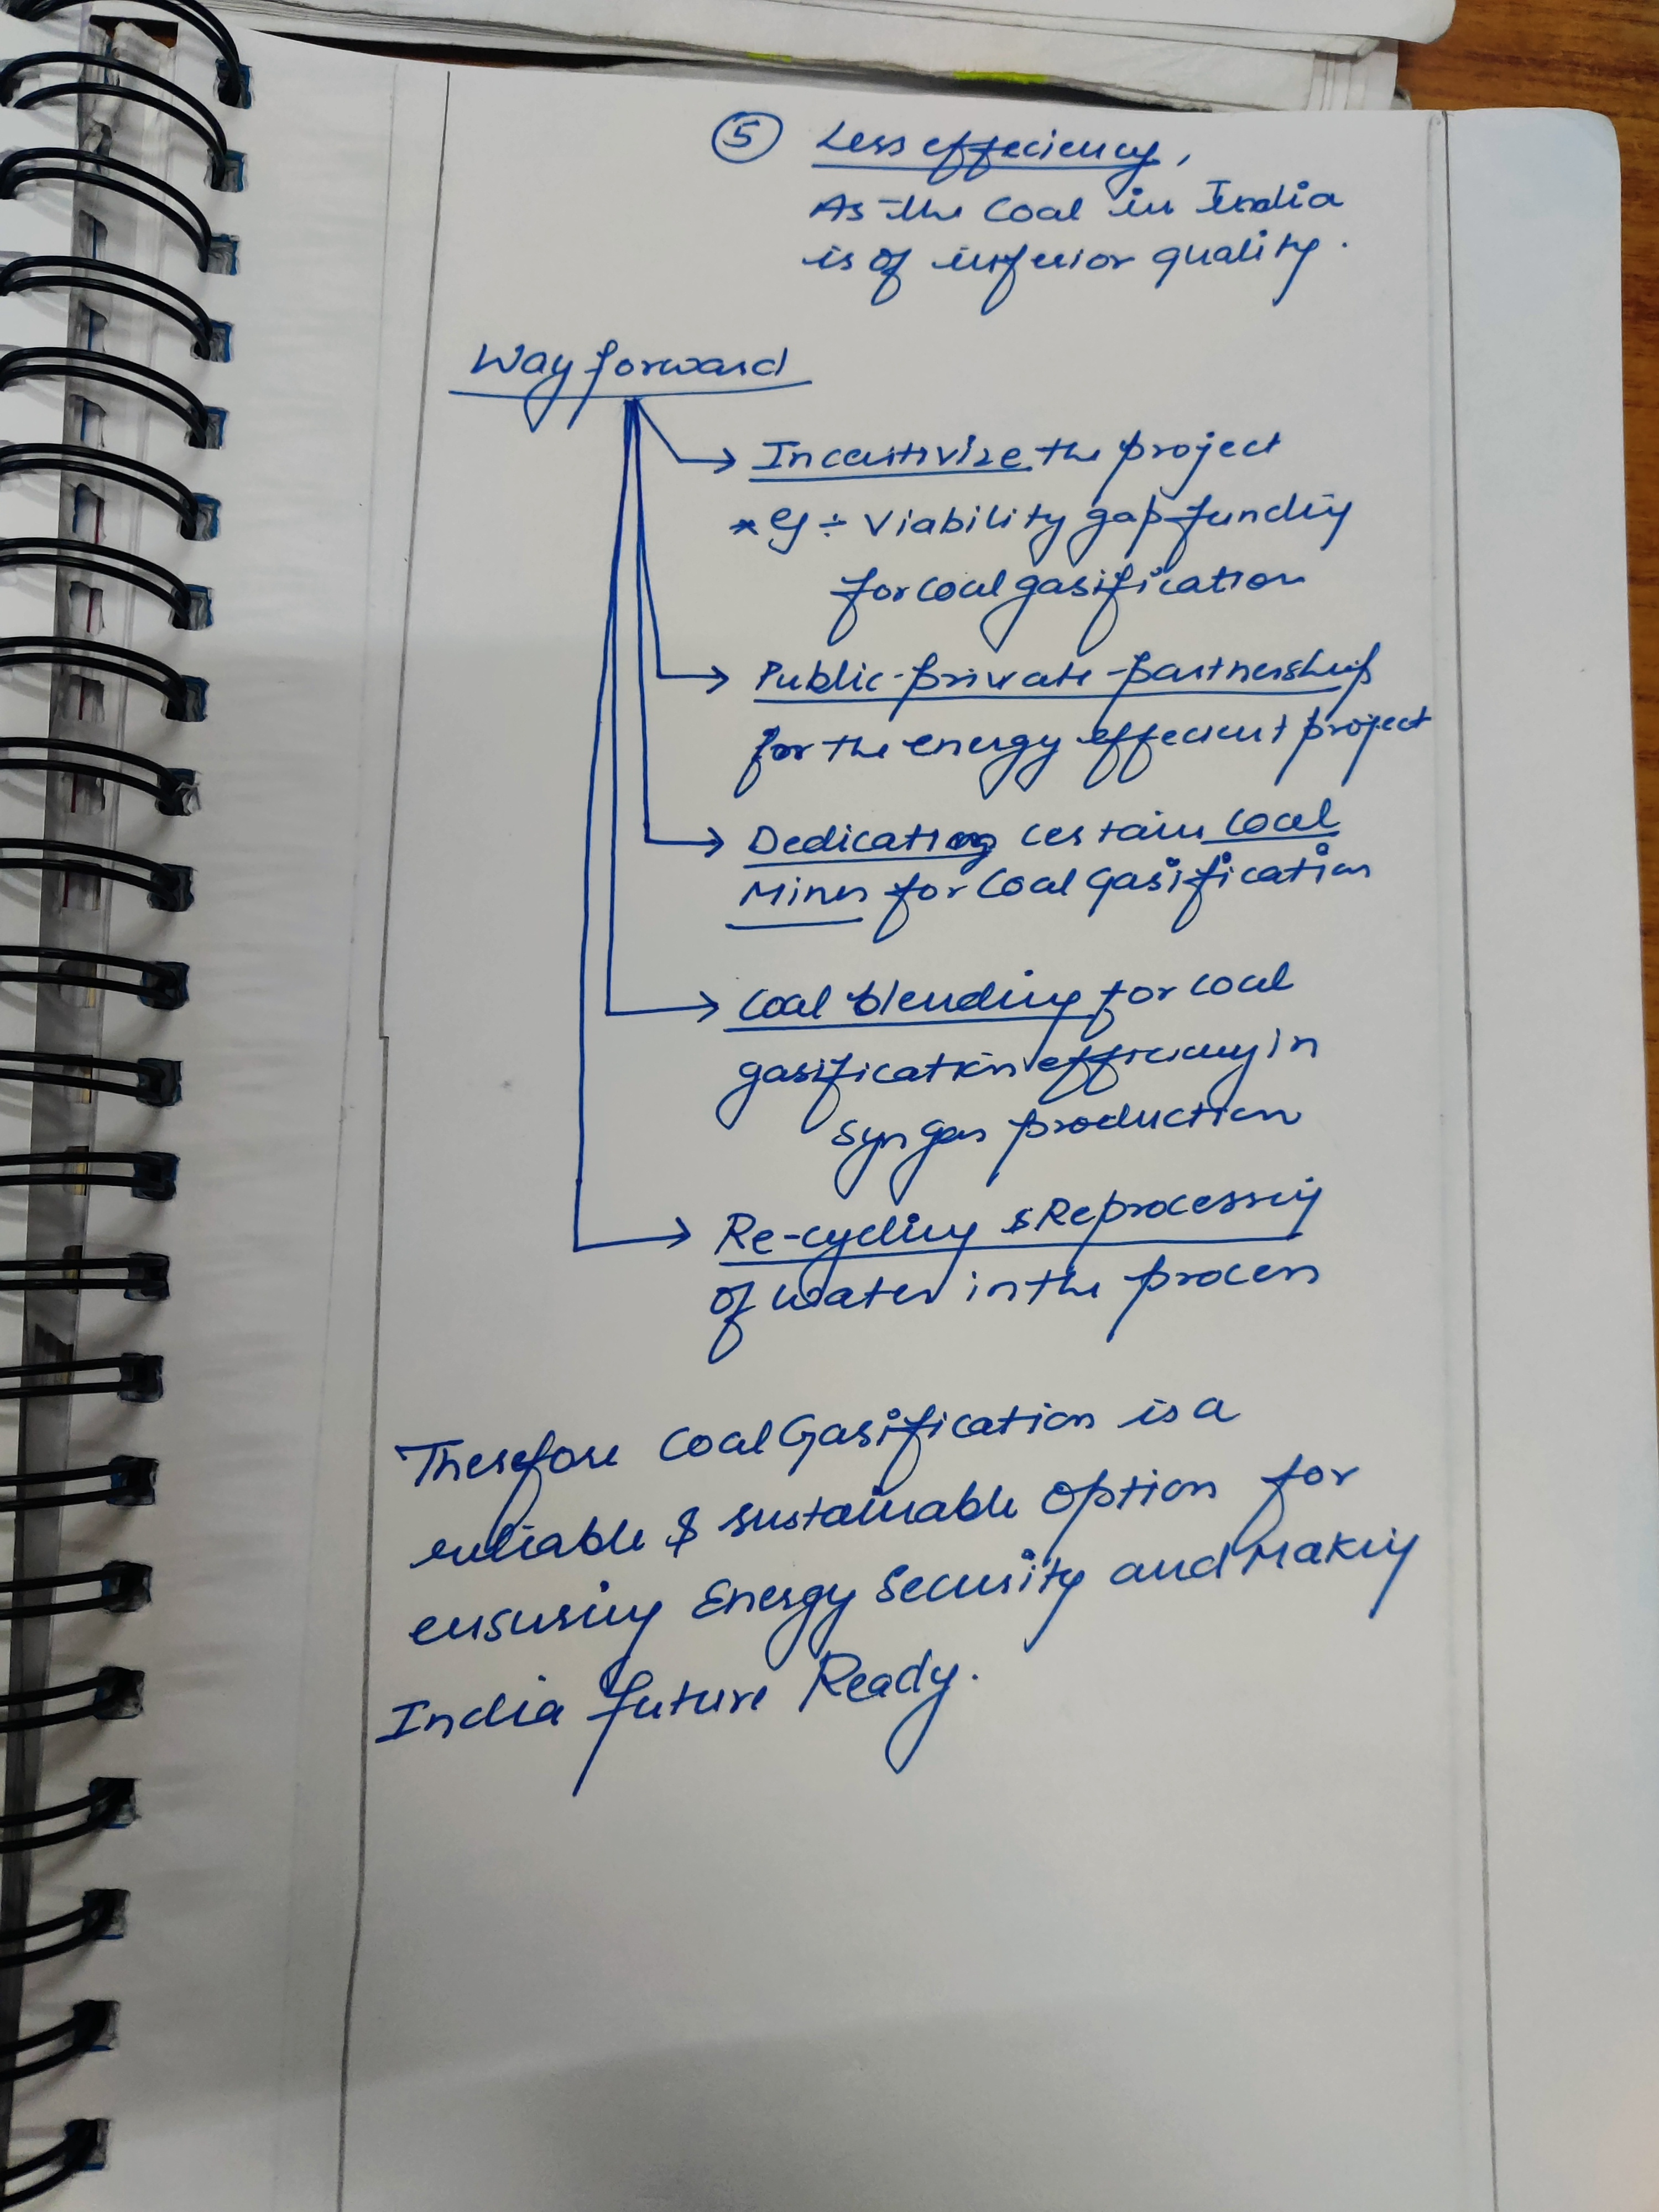 ⑤ Less effeciency,
As the Coal in India
is of inferior quality.
Way forward
→ Incentivize the project
* eg ÷ Viability gap funding
for coal gasification
→ Public-private-partnership
for the energy effecient project
→ Dedicating certain Coal
Mines for Coal Gasification
→ Coal blending for coal
gasification efficiency in
syn gas production
→ Re-cycling & Reprocessing
of water in the process
Therefore Coal Gasification is a
reliable & sustainable option for
ensuring Energy Security and Making
India future Ready.